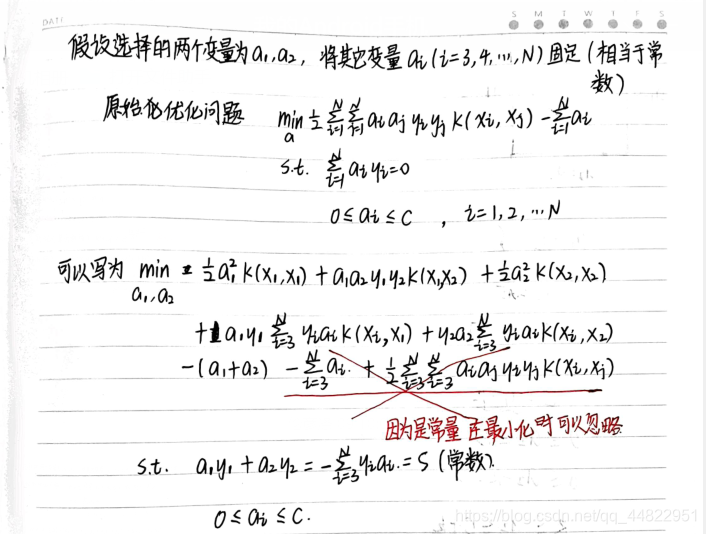 DATE
S M T W T F S
假设选择的两个变量为a₁,a₂, 将其它变量aᵢ(i=3,4,…,N)固定(相当于常
数)
原始化优化问题 min_a ½ Σ_{i=1}^N Σ_{j=1}^N aᵢ aⱼ yᵢ yⱼ K(xᵢ, xⱼ) - Σ_{i=1}^N aᵢ
s.t. Σ_{i=1}^N aᵢ yᵢ = 0
0 ≤ aᵢ ≤ C , i=1,2,…N
可以写为 min_{a₁,a₂} ½a₁² K(x₁,x₁) + a₁a₂y₁y₂K(x₁,x₂) + ½a₂² K(x₂,x₂)
+ a₁y₁ Σ_{i=3}^N yᵢaᵢK(xᵢ,x₁) + y₂a₂ Σ_{i=3}^N yᵢaᵢK(xᵢ,x₂)
-(a₁+a₂) - Σ_{i=3}^N aᵢ + ½ Σ_{i=3}^N Σ_{i=3}^N aᵢaⱼyᵢyⱼK(xᵢ,xⱼ)
因为是常量 在最小化时可以忽略
s.t. a₁y₁ + a₂y₂ = - Σ_{i=3}^N yᵢaᵢ = S (常数).
0 ≤ aᵢ ≤ C.
https://blog.csdn.net/qq_44822951